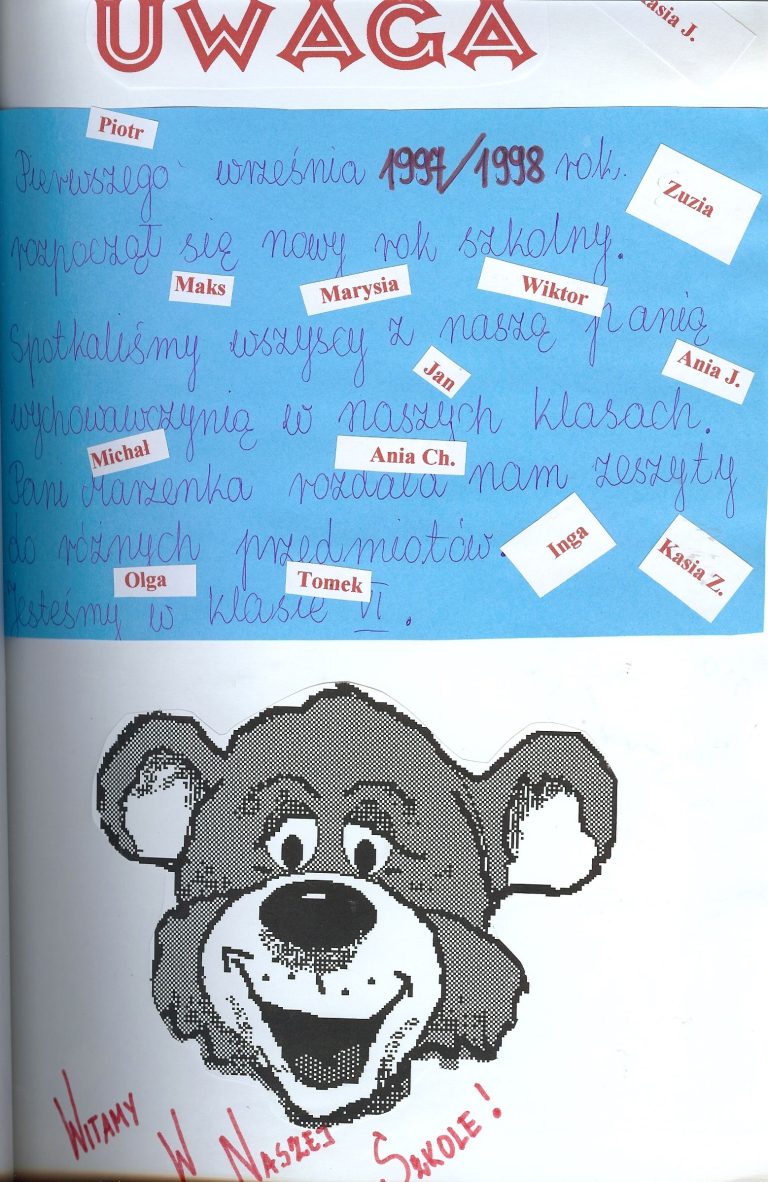 UWAGA
Kasia J.
Piotr
Pierwszego września 1997/1998 rok.
Zuzia
rozpoczął się nowy rok szkolny.
Maks
Marysia
Wiktor
Spotkaliśmy wszyscy z naszą panią
Jan
Ania J.
wychowawczynią w naszych klasach.
Michał
Ania Ch.
Pani Marzenka rozdała nam zeszyty
do różnych przedmiotów.
Inga
Kasia Z.
Olga
Tomek
Jesteśmy w klasie VI.
WITAMY W NASZEJ SZKOLE!